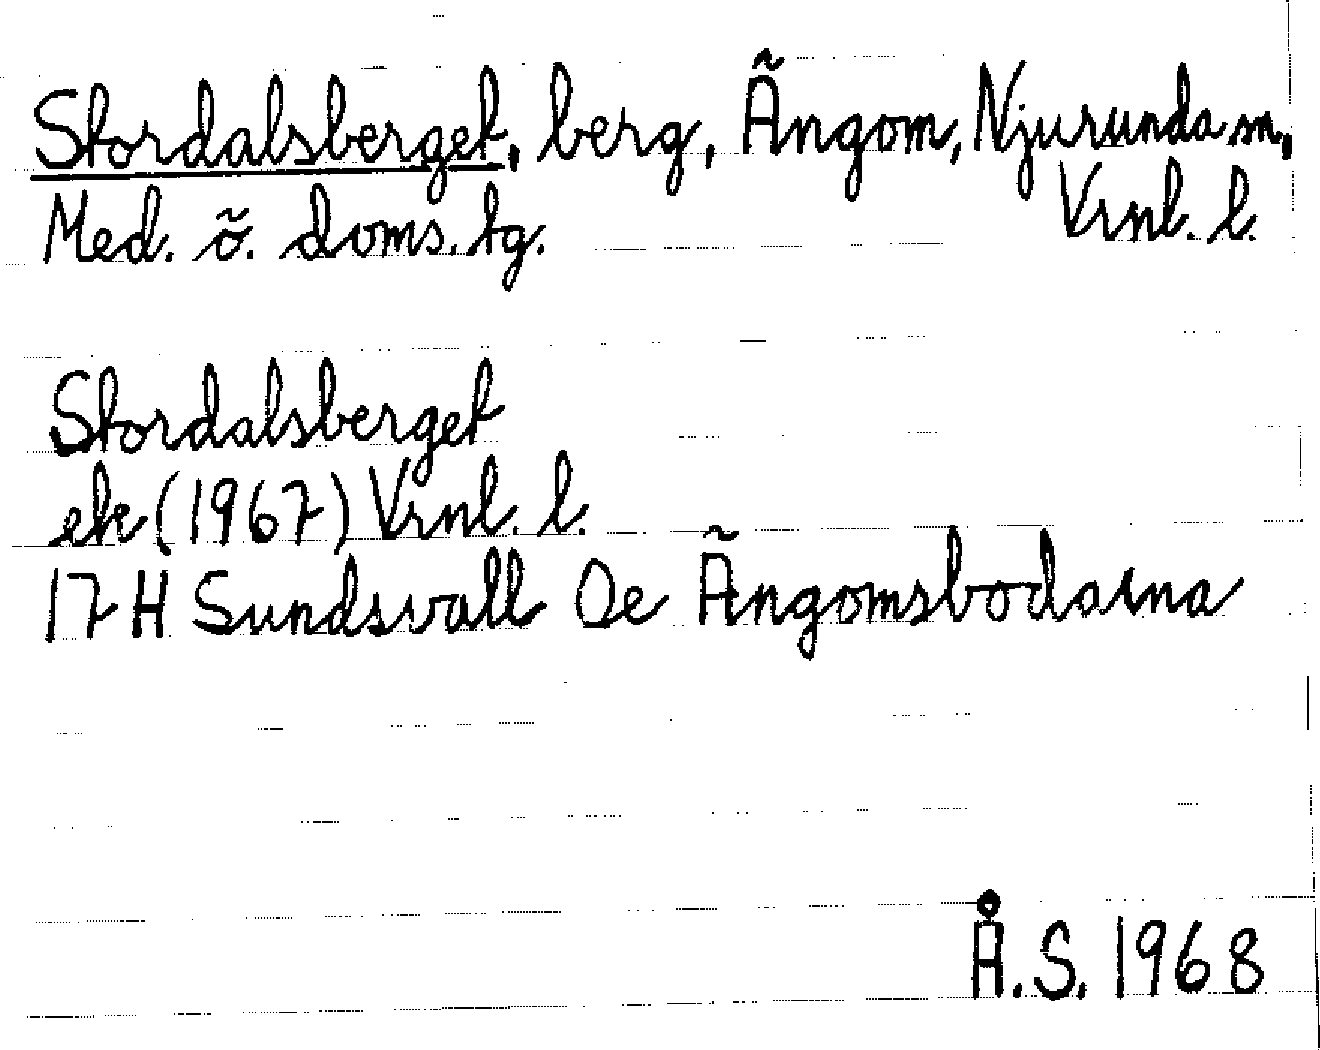 Stordalsberget, berg, Ängom, Njurunda sn,
Med. ö. doms. tg. Vrnl. l.
Stordalsberget
ek (1967) Vrnl. l.
17 H Sundsvall Oe Ängomsbodarna
Å.S. 1968